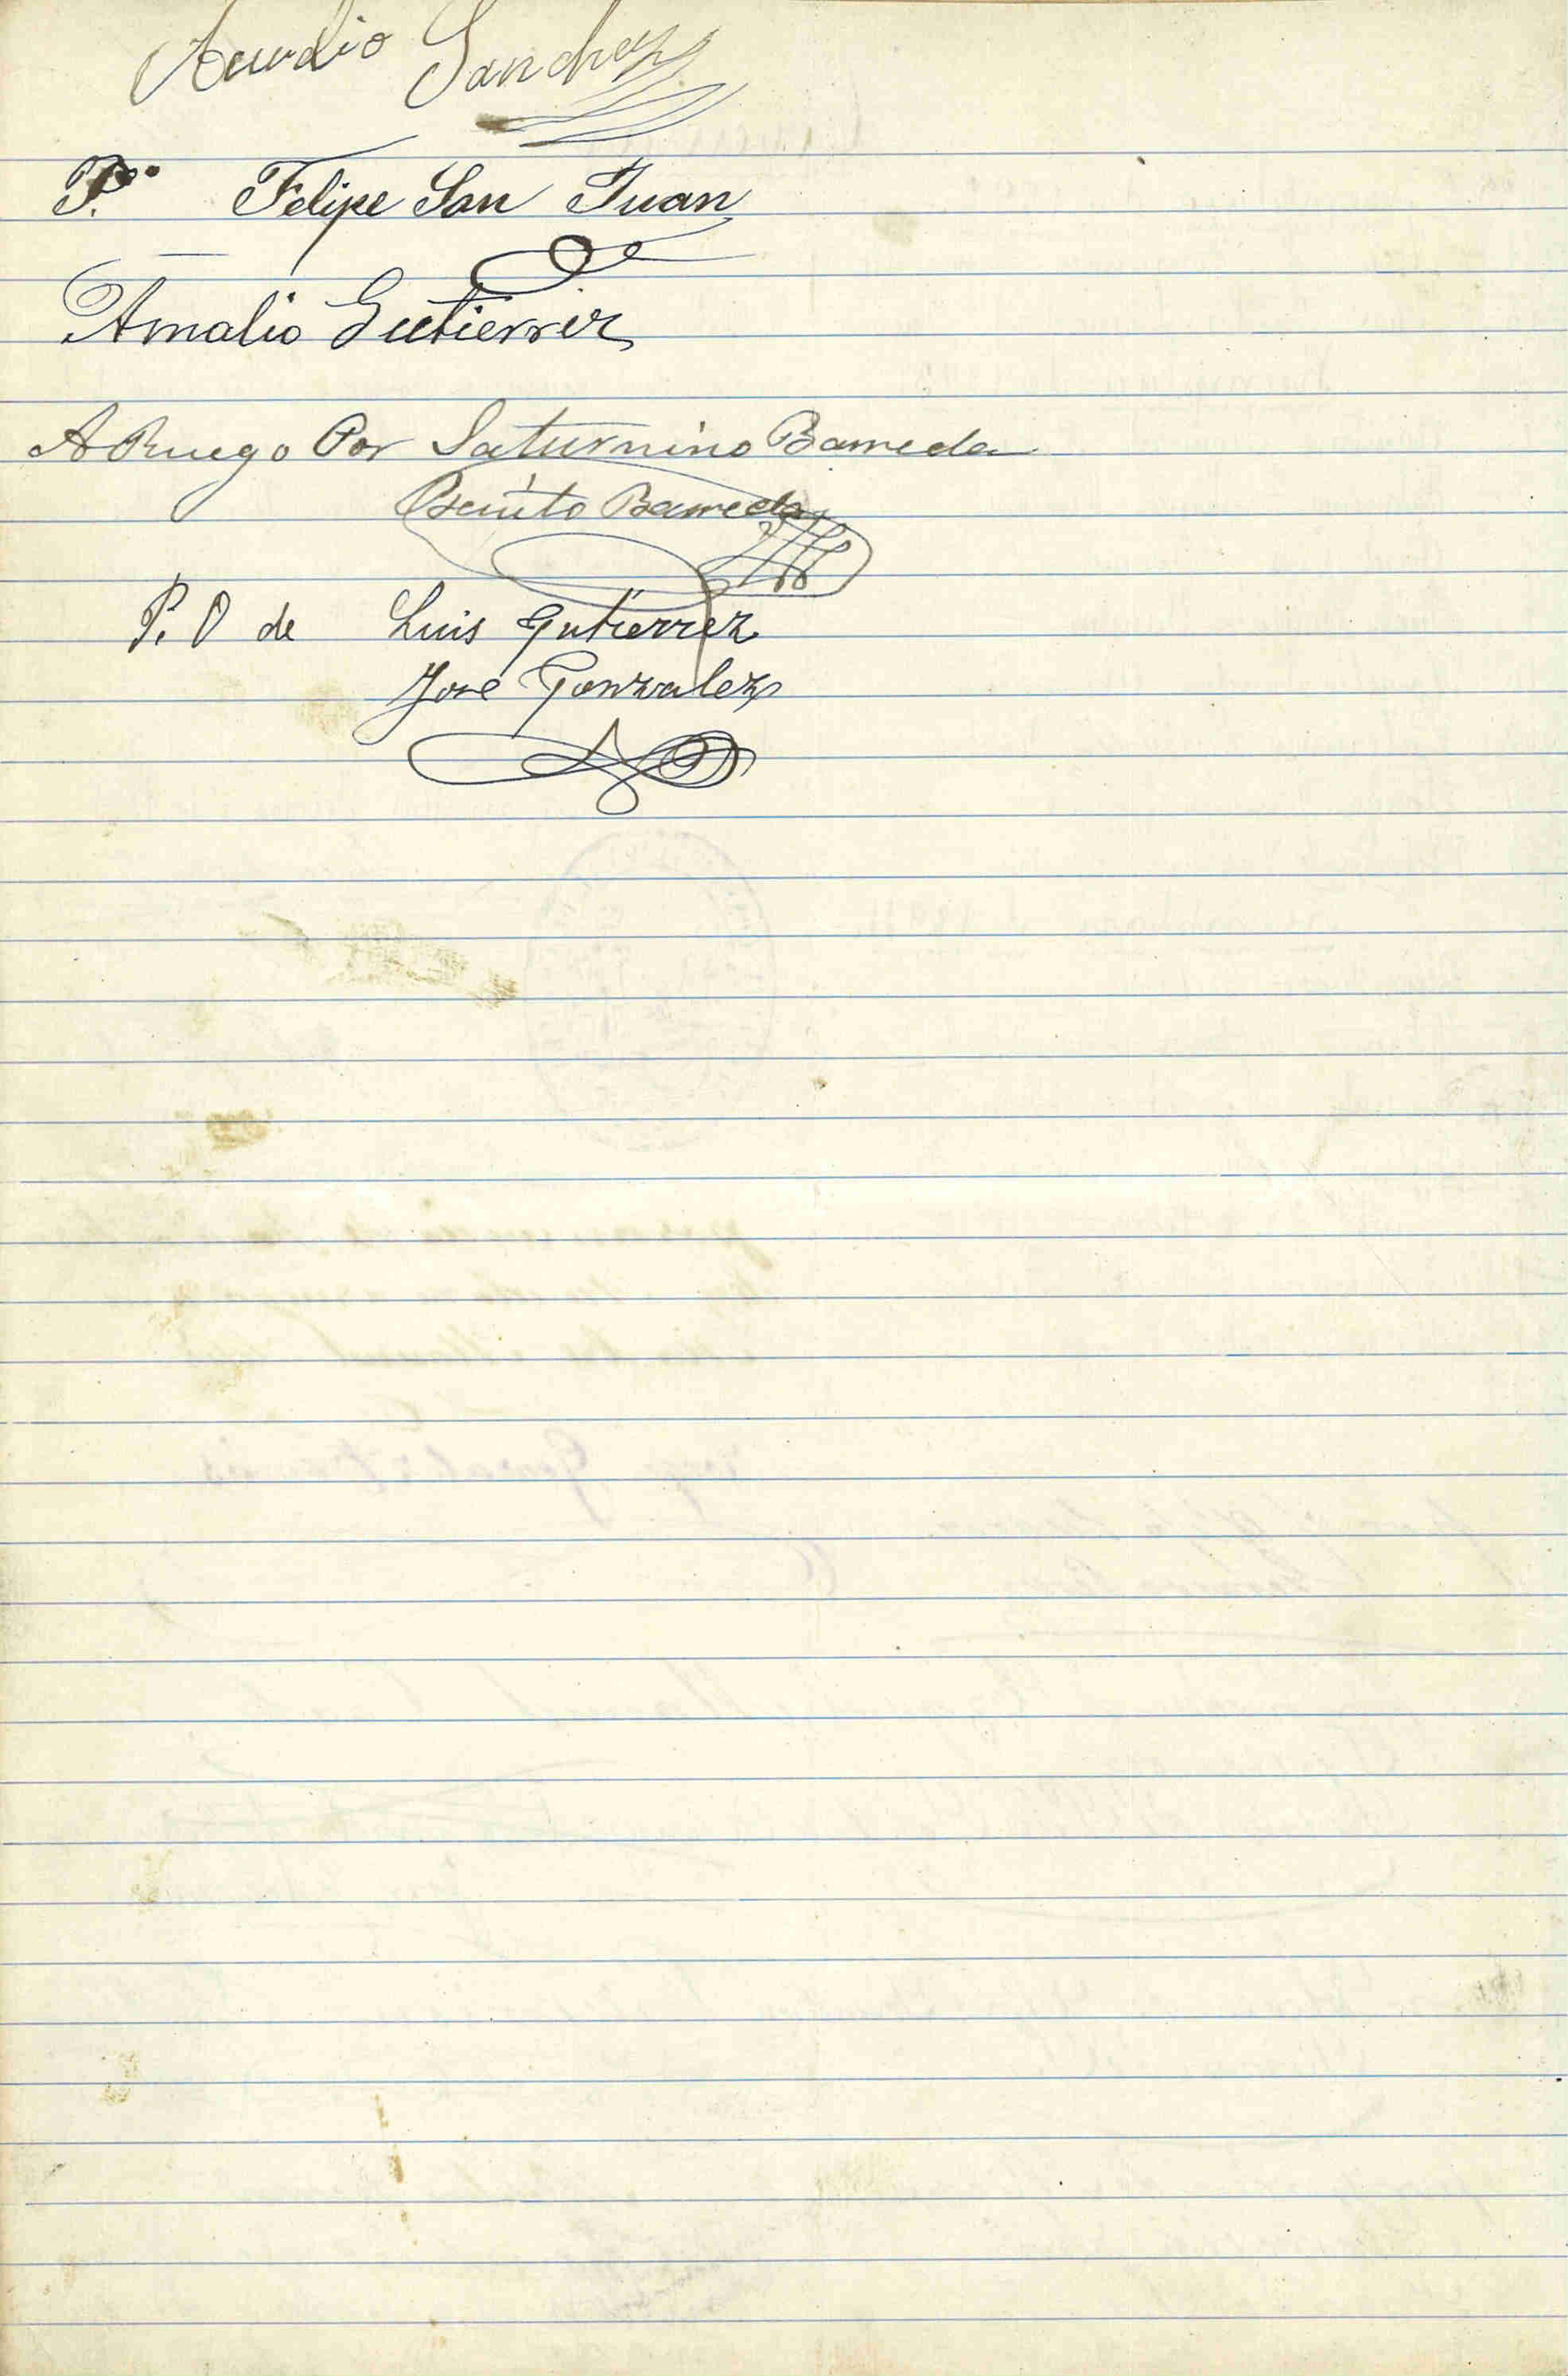 Sanchez
P.º Felipe San Juan
Amalio Gutierrez
A Ruego Por Saturnino Barreda
Benito Barreda
P. O de Luis Gutierrez
José Gonzalez